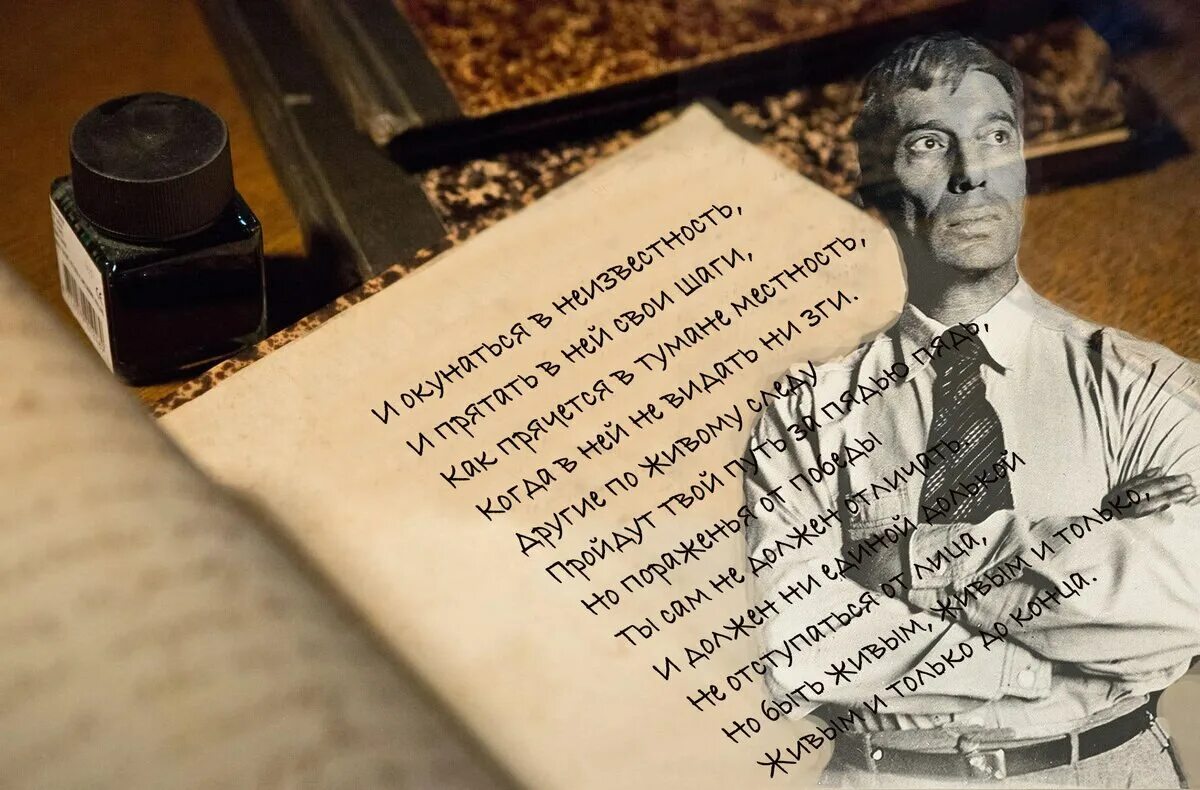 И окунаться в неизвестность,
И прятать в ней свои шаги,
Как прячется в тумане местность,
Когда в ней не видать ни зги.
Другие по живому следу
Пройдут твой путь за пядью пядь,
Но пораженья от победы
Ты сам не должен отличать
И должен ни единой долькой
Не отступаться от лица,
Но быть живым, живым и только,
Живым и только до конца.